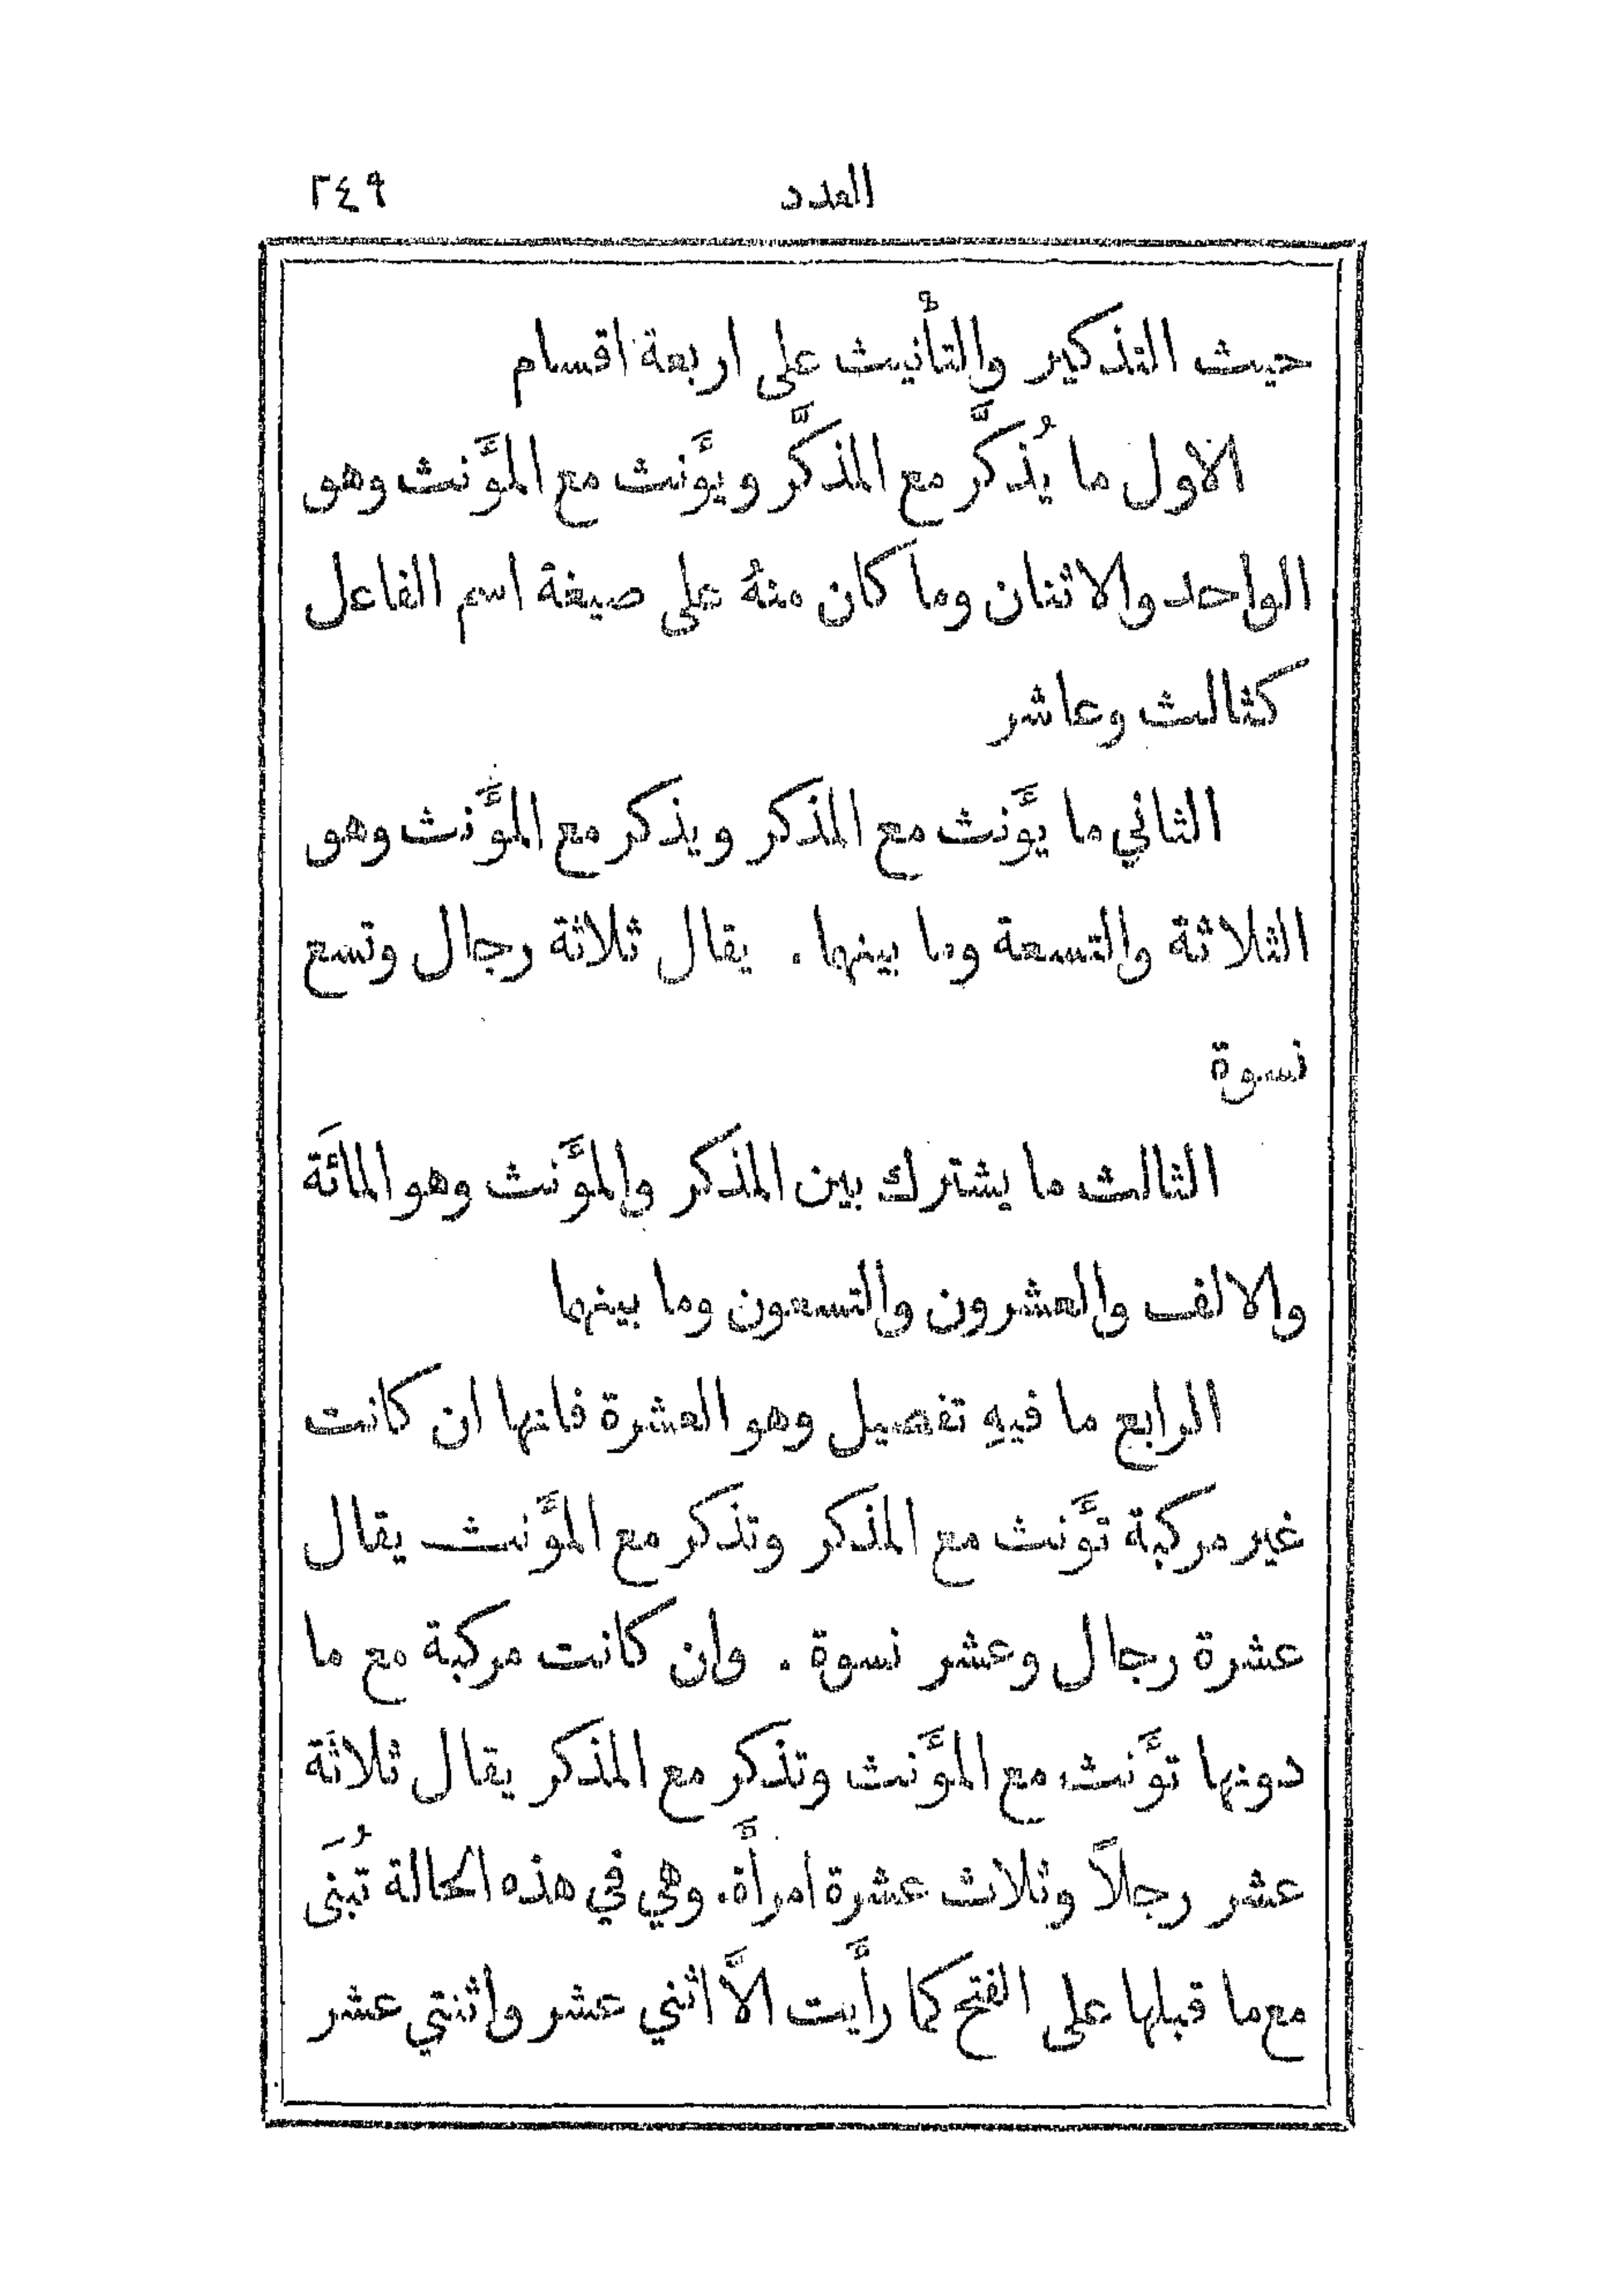 العدد ٢٤٩
حيث التذكير والتأنيث على اربعة اقسام
الاول ما يُذكَّر مع المذكَّر ويؤَنث مع المؤَنث وهو
الواحد والاثنان وما كان منهُ على صيغة اسم الفاعل
كثالث وعاشر
الثاني ما يؤَنث مع المذكر ويذكر مع المؤَنث وهو
الثلاثة والتسعة وما بينهما . يقال ثلاثة رجال وتسع
نسوة
الثالث ما يشترك بين المذكر والمؤَنث وهو المائَة
والالف والعشرون والتسعون وما بينهما
الرابع ما فيهِ تفصيل وهو العشرة فانها ان كانت
غير مركبة تؤَنث مع المذكر وتذكر مع المؤَنث يقال
عشرة رجال وعشر نسوة . وان كانت مركبة مع ما
دونها تؤَنث مع المؤَنث وتذكر مع المذكر يقال ثلاثَة
عشر رجلاً وثلاث عشرة امرأَة. وهي في هذه الحالة تُبنَى
مع ما قبلها على الفتح كما رأَيت الاَّ اثني عشر واثنتي عشر